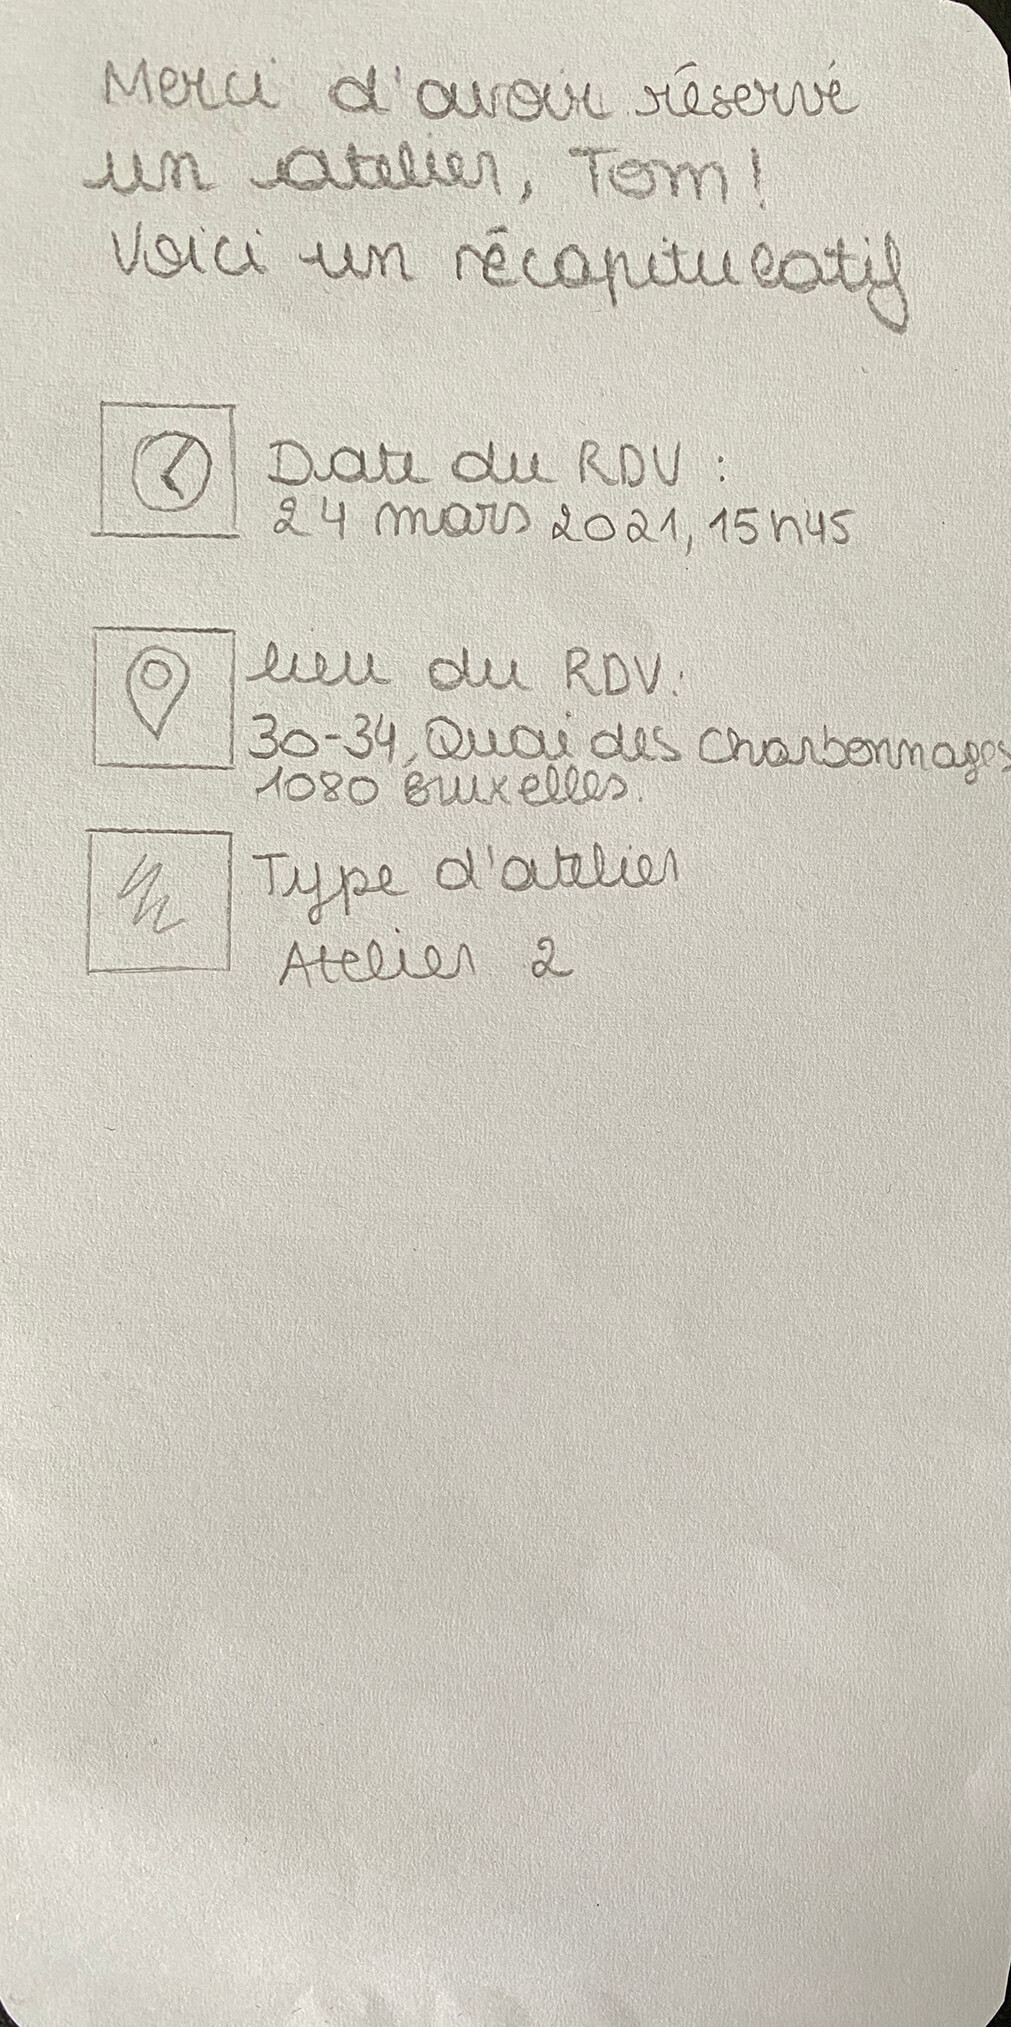 Merci d'avoir réservé
un atelier, Tom!
Voici un récapitulatif
Date du RDV :
24 mars 2021, 15h45
lieu du RDV:
30-34, Quai des Charbonnages
1080 Bruxelles.
Type d'atelier
Atelier 2